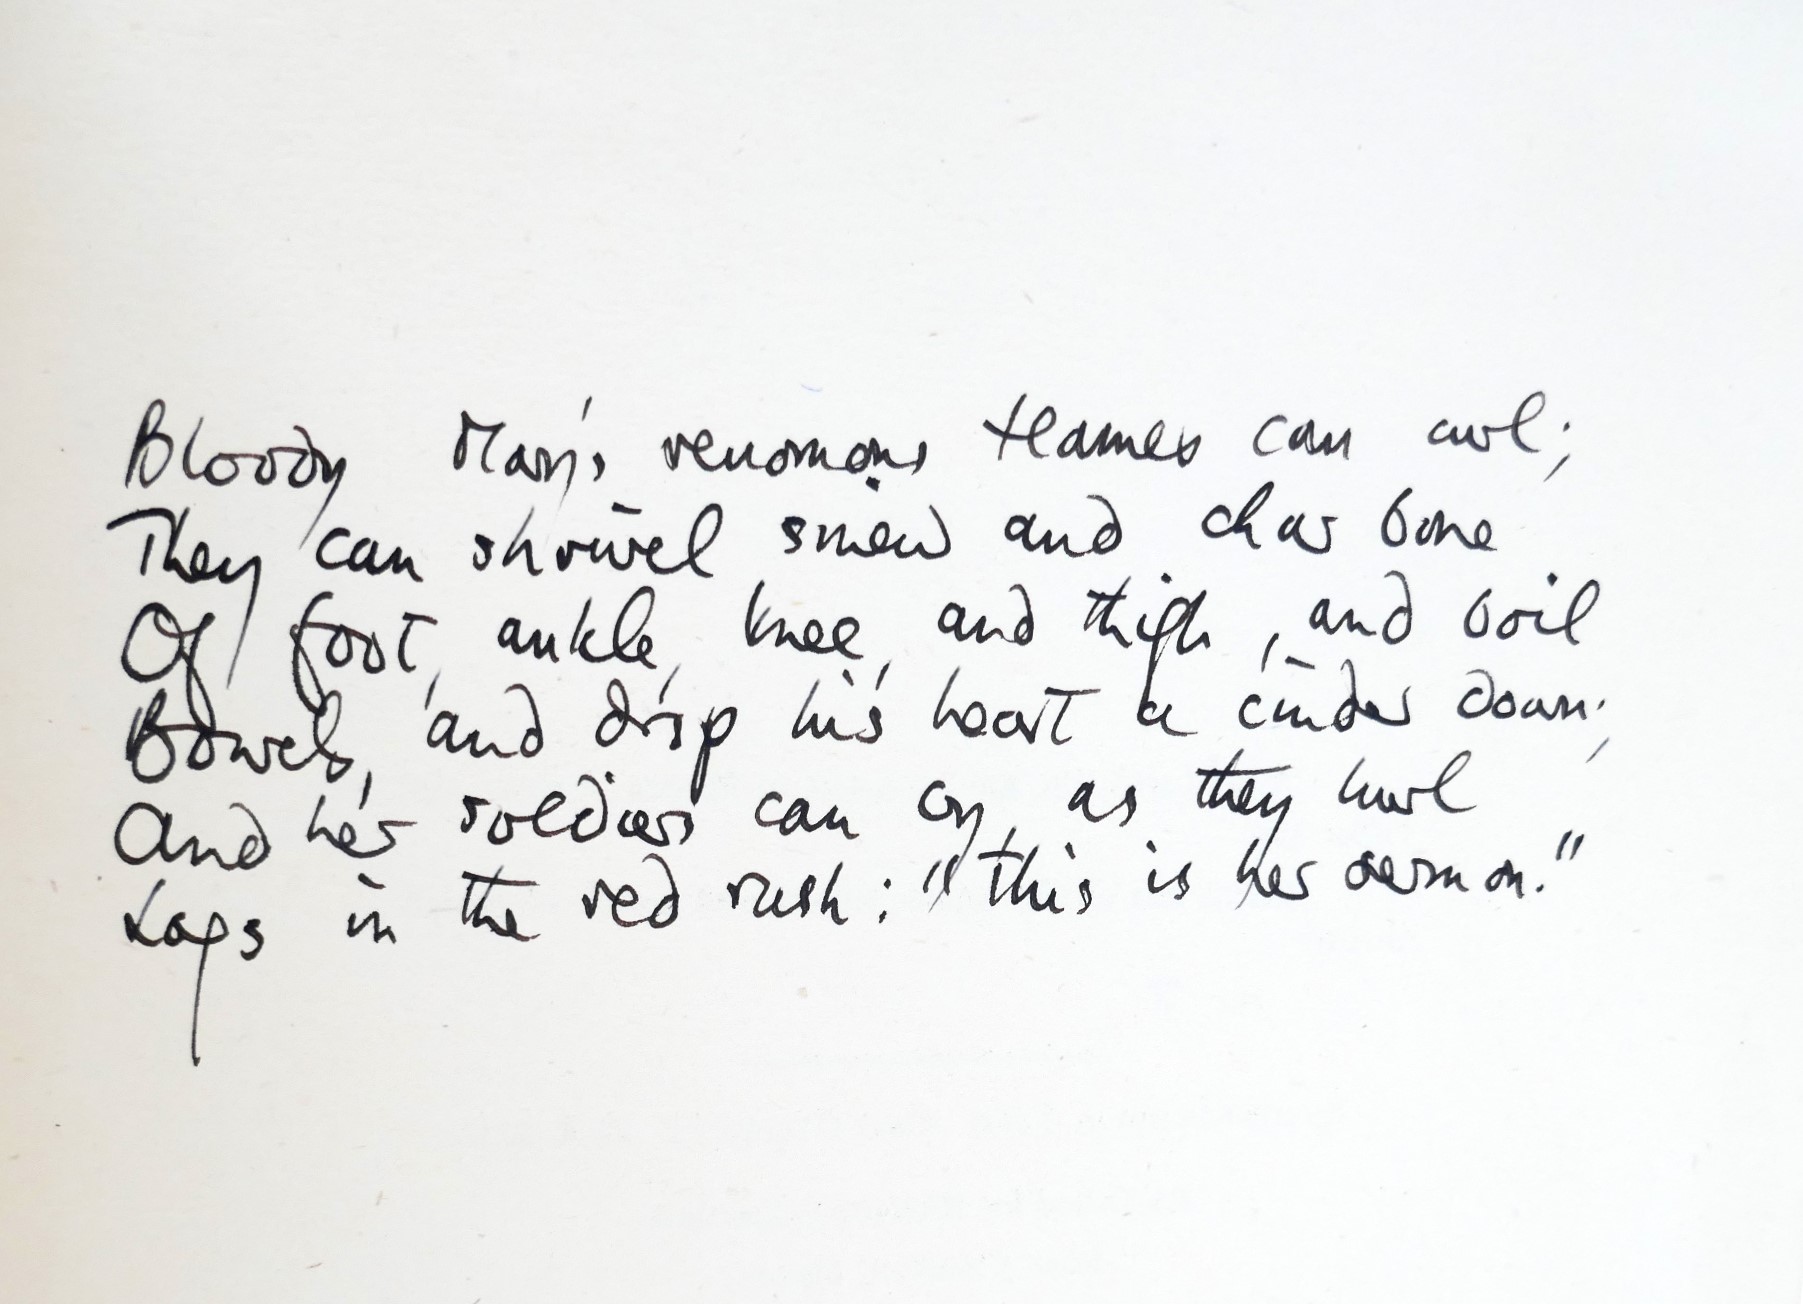 Bloody Mary's venomous flames can curl;
They can shrivel sinew and char bone
Of foot, ankle, knee, and thigh, and boil
Bowels, and drop his heart a cinder down;
And her soldiers can cry, as they hurl
Logs in the red rush: "This is her sermon."